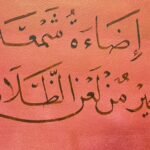 إضَاءَة شُمعَة
ير مُنْ لَعن الظَّلَا